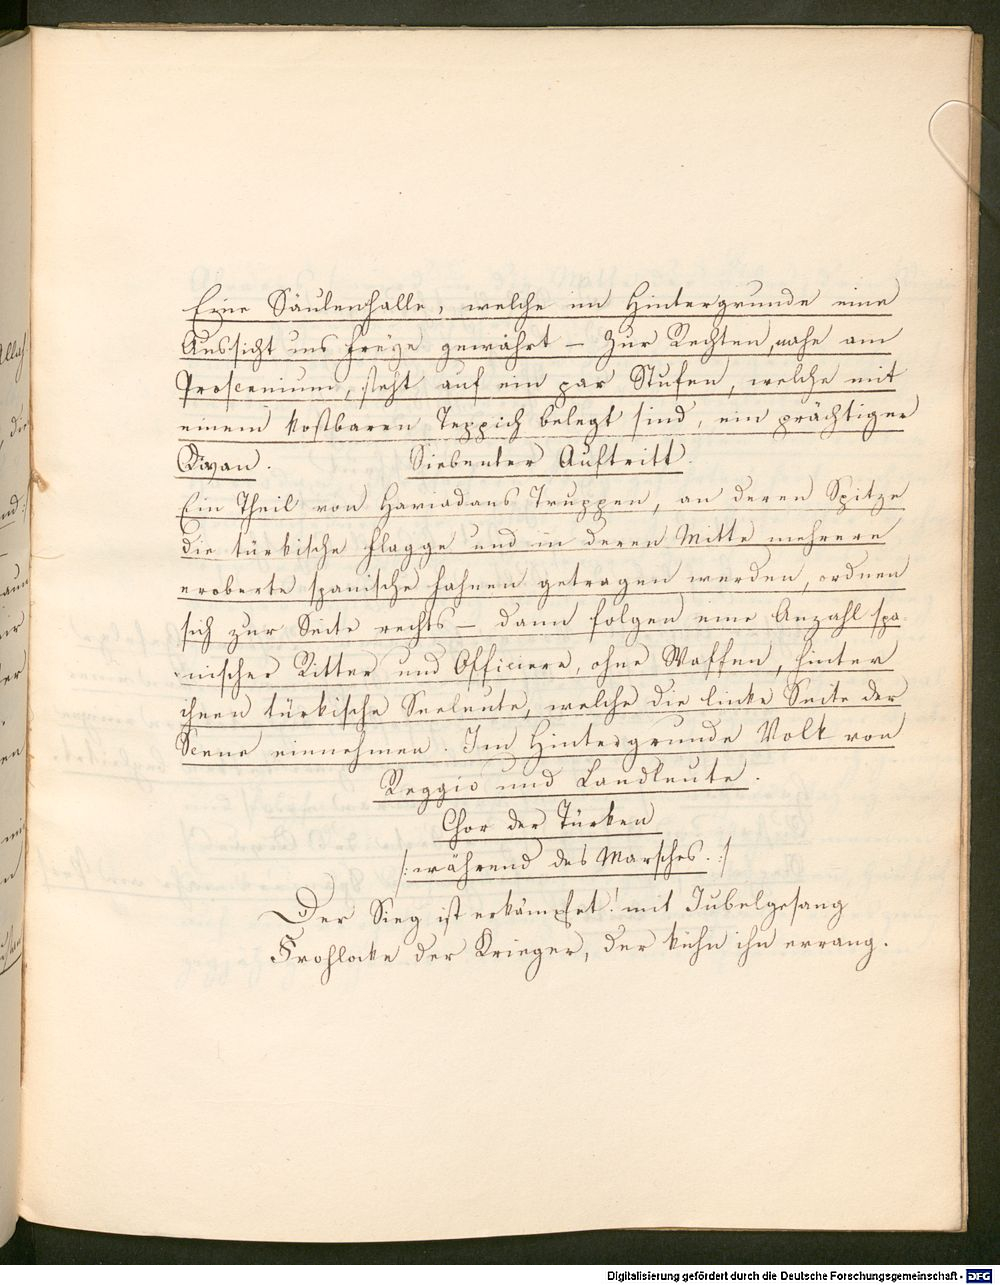 Eine Säulenhalle, welche im Hintergrunde eine
Aussicht ins Freye gewährt – Zur Rechten, nahe am
Proscenium, steht auf ein par Stufen, welche mit
einem kostbaren Teppich belegt sind, ein prächtiger
Divan. Siebenter Auftritt.
Ein Theil von Hariadans Truppen, an deren Spitze
die türkische Flagge und in deren Mitte mehrere
eroberte spanische Fahnen getragen werden, ordnen
sich zur Seite rechts – dann folgen eine Anzahl spa-
nischer Ritter und Officiere, ohne Waffen, hinter
ihnen türkische Seeleute, welche die linke Seite der
Scene einnehmen. Im Hintergrunde Volk von
Reggio und Landleute.
Chor der Türken
/: während des Marsches. :/
Der Sieg ist erkämpfet! mit Jubelgesang
Frohlocke der Krieger, der kühn ihn errang.
Digitalisierung gefördert durch die Deutsche Forschungsgemeinschaft - DFG